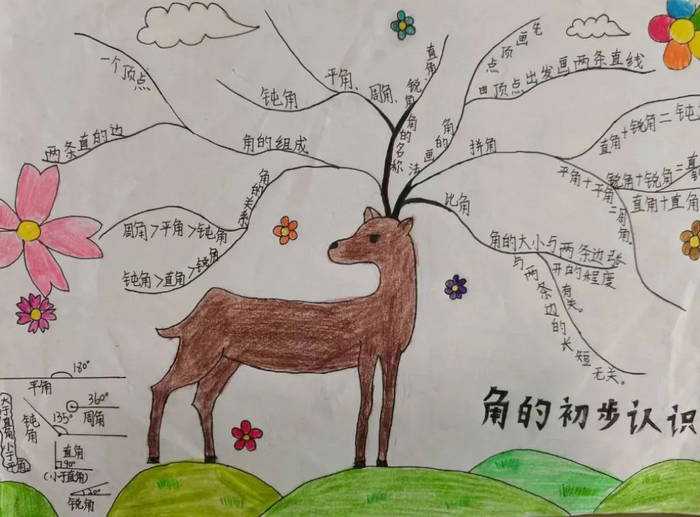 一个顶点
两条直的边
角的组成
钝角
平角、周角、
直角、锐角
角的名称
角的画法
先画顶点
由顶点出发画两条直线
拼角
直角+锐角=钝
锐角+锐角=直
直角+直角
平角+平角=周角。
比角
角的大小与两条边张
开的程度
有关。
与两条边的长短无关。
角的关系
周角>平角>钝角
钝角>直角>锐角
180°
平角
360°
周角
135°
钝角
大于直角小于平角
直角
90°
(小于直角)
锐角
角的初步认识